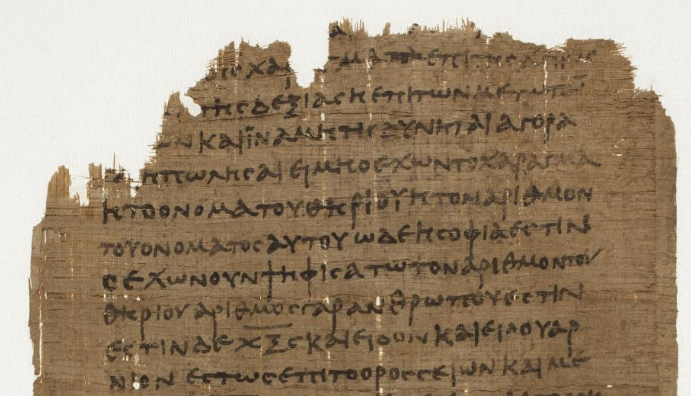 ΧΑΡ ΓΜΑΤΑΕΠΙΤΗϹΧΕΙΡΟϹ
ΤΗϹΔΕΞΙΑϹΗΕΠΙΤΩΝΜΕΤΩΠΩ
ΩΝΚΑΙΪΝΑΜΗΤΙϹΔΥΝΗΤΑΙΑΓΟΡΑ
ΗΠΩΛΗϹΑΙΕΙΜΗΟΕΧΩΝΤΟΧΑΡΑΓΜΑ
ΗΤΟΟΝΟΜΑΤΟΥΘΗΡΙΟΥΗΤΟΝΑΡΙΘΜΟΝ
ΤΟΥΟΝΟΜΑΤΟϹΑΥΤΟΥΩΔΕΗϹΟΦΙΑΕϹΤΙΝ
ΟΕΧΩΝΟΥΝΨΗΦΙϹΑΤΩΤΟΝΑΡΙΘΜΟΝΤΟΥ
ΘΗΡΙΟΥΑΡΙΘΜΟϹΓΑΡΑΝΘΡΩΠΟΥΕϹΤΙΝ
ΕϹΤΙΝΔΕΧΞϚΚΑΙΕΙΔΟΝΚΑΙΕΙΔΟΥΑΡ
ΝΙΟΝΕϹΤΩϹΕΠΙΤΟΟΡΟϹϹΕΙΩΝΚΑΙΜΕ